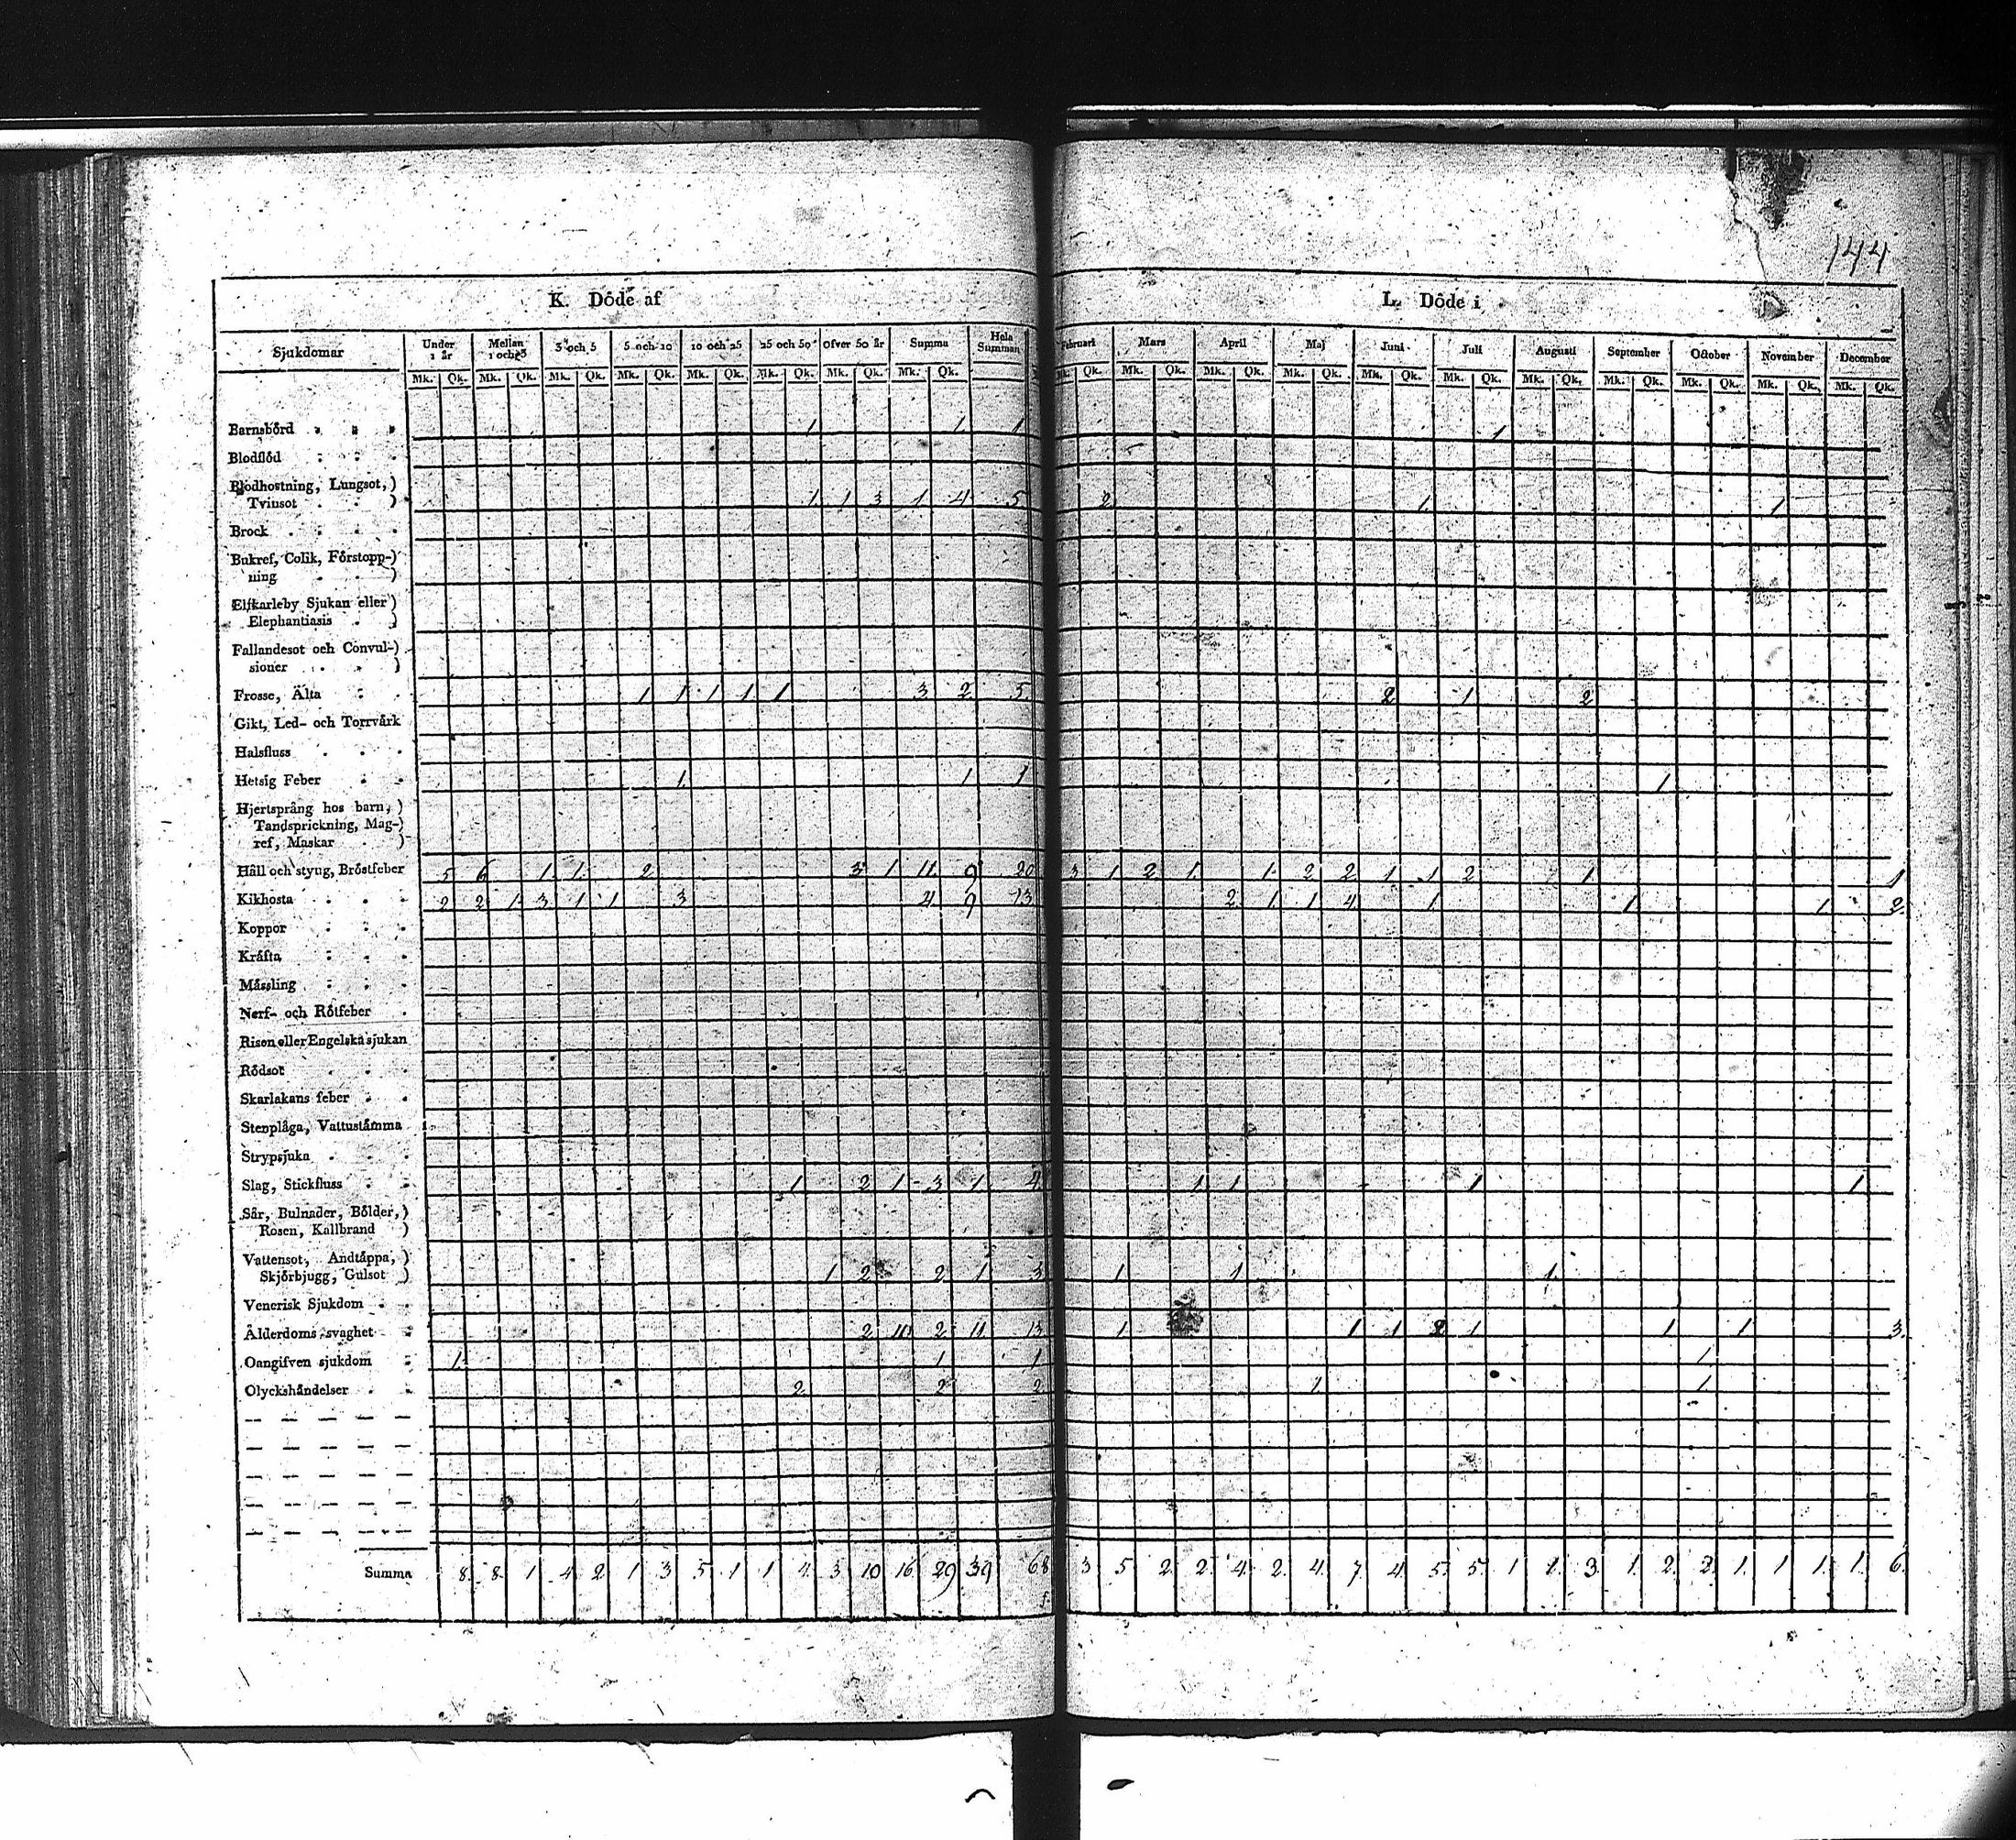 144
K. Döde af L. Döde i
Sjukdomar Under 1 år Mellan 1 och 3 3 och 5 5 och 10 10 och 25 25 och 50 Ofver 50 år Summa Hela Summan Februari Mars April Maj Juni Juli Augusti September October November December
Mk. Qk. Mk. Qk. Mk. Qk. Mk. Qk. Mk. Qk. Mk. Qk. Mk. Qk. Mk. Qk. Mk. Qk. Mk. Qk. Mk. Qk. Mk. Qk. Mk. Qk. Mk. Qk. Mk. Qk. Mk. Qk. Mk. Qk. Mk. Qk. Mk. Qk.
Barnsbörd 1 1 1 1
Blodflöd
Blodhostning, Lungsot,)
Tvinsot ) 1 1 3 1 4 5 2 1 1
Brock
Bukref, Colik, Förstopp-)
ning )
Elfkarleby Sjukan eller)
Elephantiasis )
Fallandesot och Convul-)
sioner )
Frosse, Älta 1 1 1 1 1 3 2 5 2 1 2
Gikt, Led- och Torrvärk
Halsfluss
Hetsig Feber 1 1 1 1
Hjertsprång hos barn,)
Tandsprickning, Mag-)
ref, Maskar )
Håll och styng, Bröstfeber 5 6 1 1 2 3 1 11 9 20 3 1 2 1 1 2 2 1 1 2 1 1
Kikhosta 2 2 1 3 1 1 3 4 9 13 2 1 1 4 1 1 1 2
Koppor
Kräfta
Mässling
Nerf- och Rötfeber
Risen eller Engelska sjukan
Rödsot
Skarlakans feber
Stenplåga, Vattustämma
Strypsjuka
Slag, Stickfluss 1 2 1 3 1 4 1 1 1 1
Sår, Bulnader, Bölder,)
Rosen, Kallbrand )
Vattensot, Andtäppa,)
Skjörbjugg, Gulsot ) 1 2 2 1 3 1 1 1
Venerisk Sjukdom
Ålderdoms svaghet 2 10 2 11 13 1 1 1 2 1 1 1 3
Oangifven sjukdom 1 1 1 1
Olyckshändelser 2 2 2 1 1
Summa 8 8 1 4 2 1 3 5 1 1 4 3 10 16 29 39 68 3 5 2 2 4 2 4 7 4 5 5 1 1 3 1 2 2 1 1 1 1 6